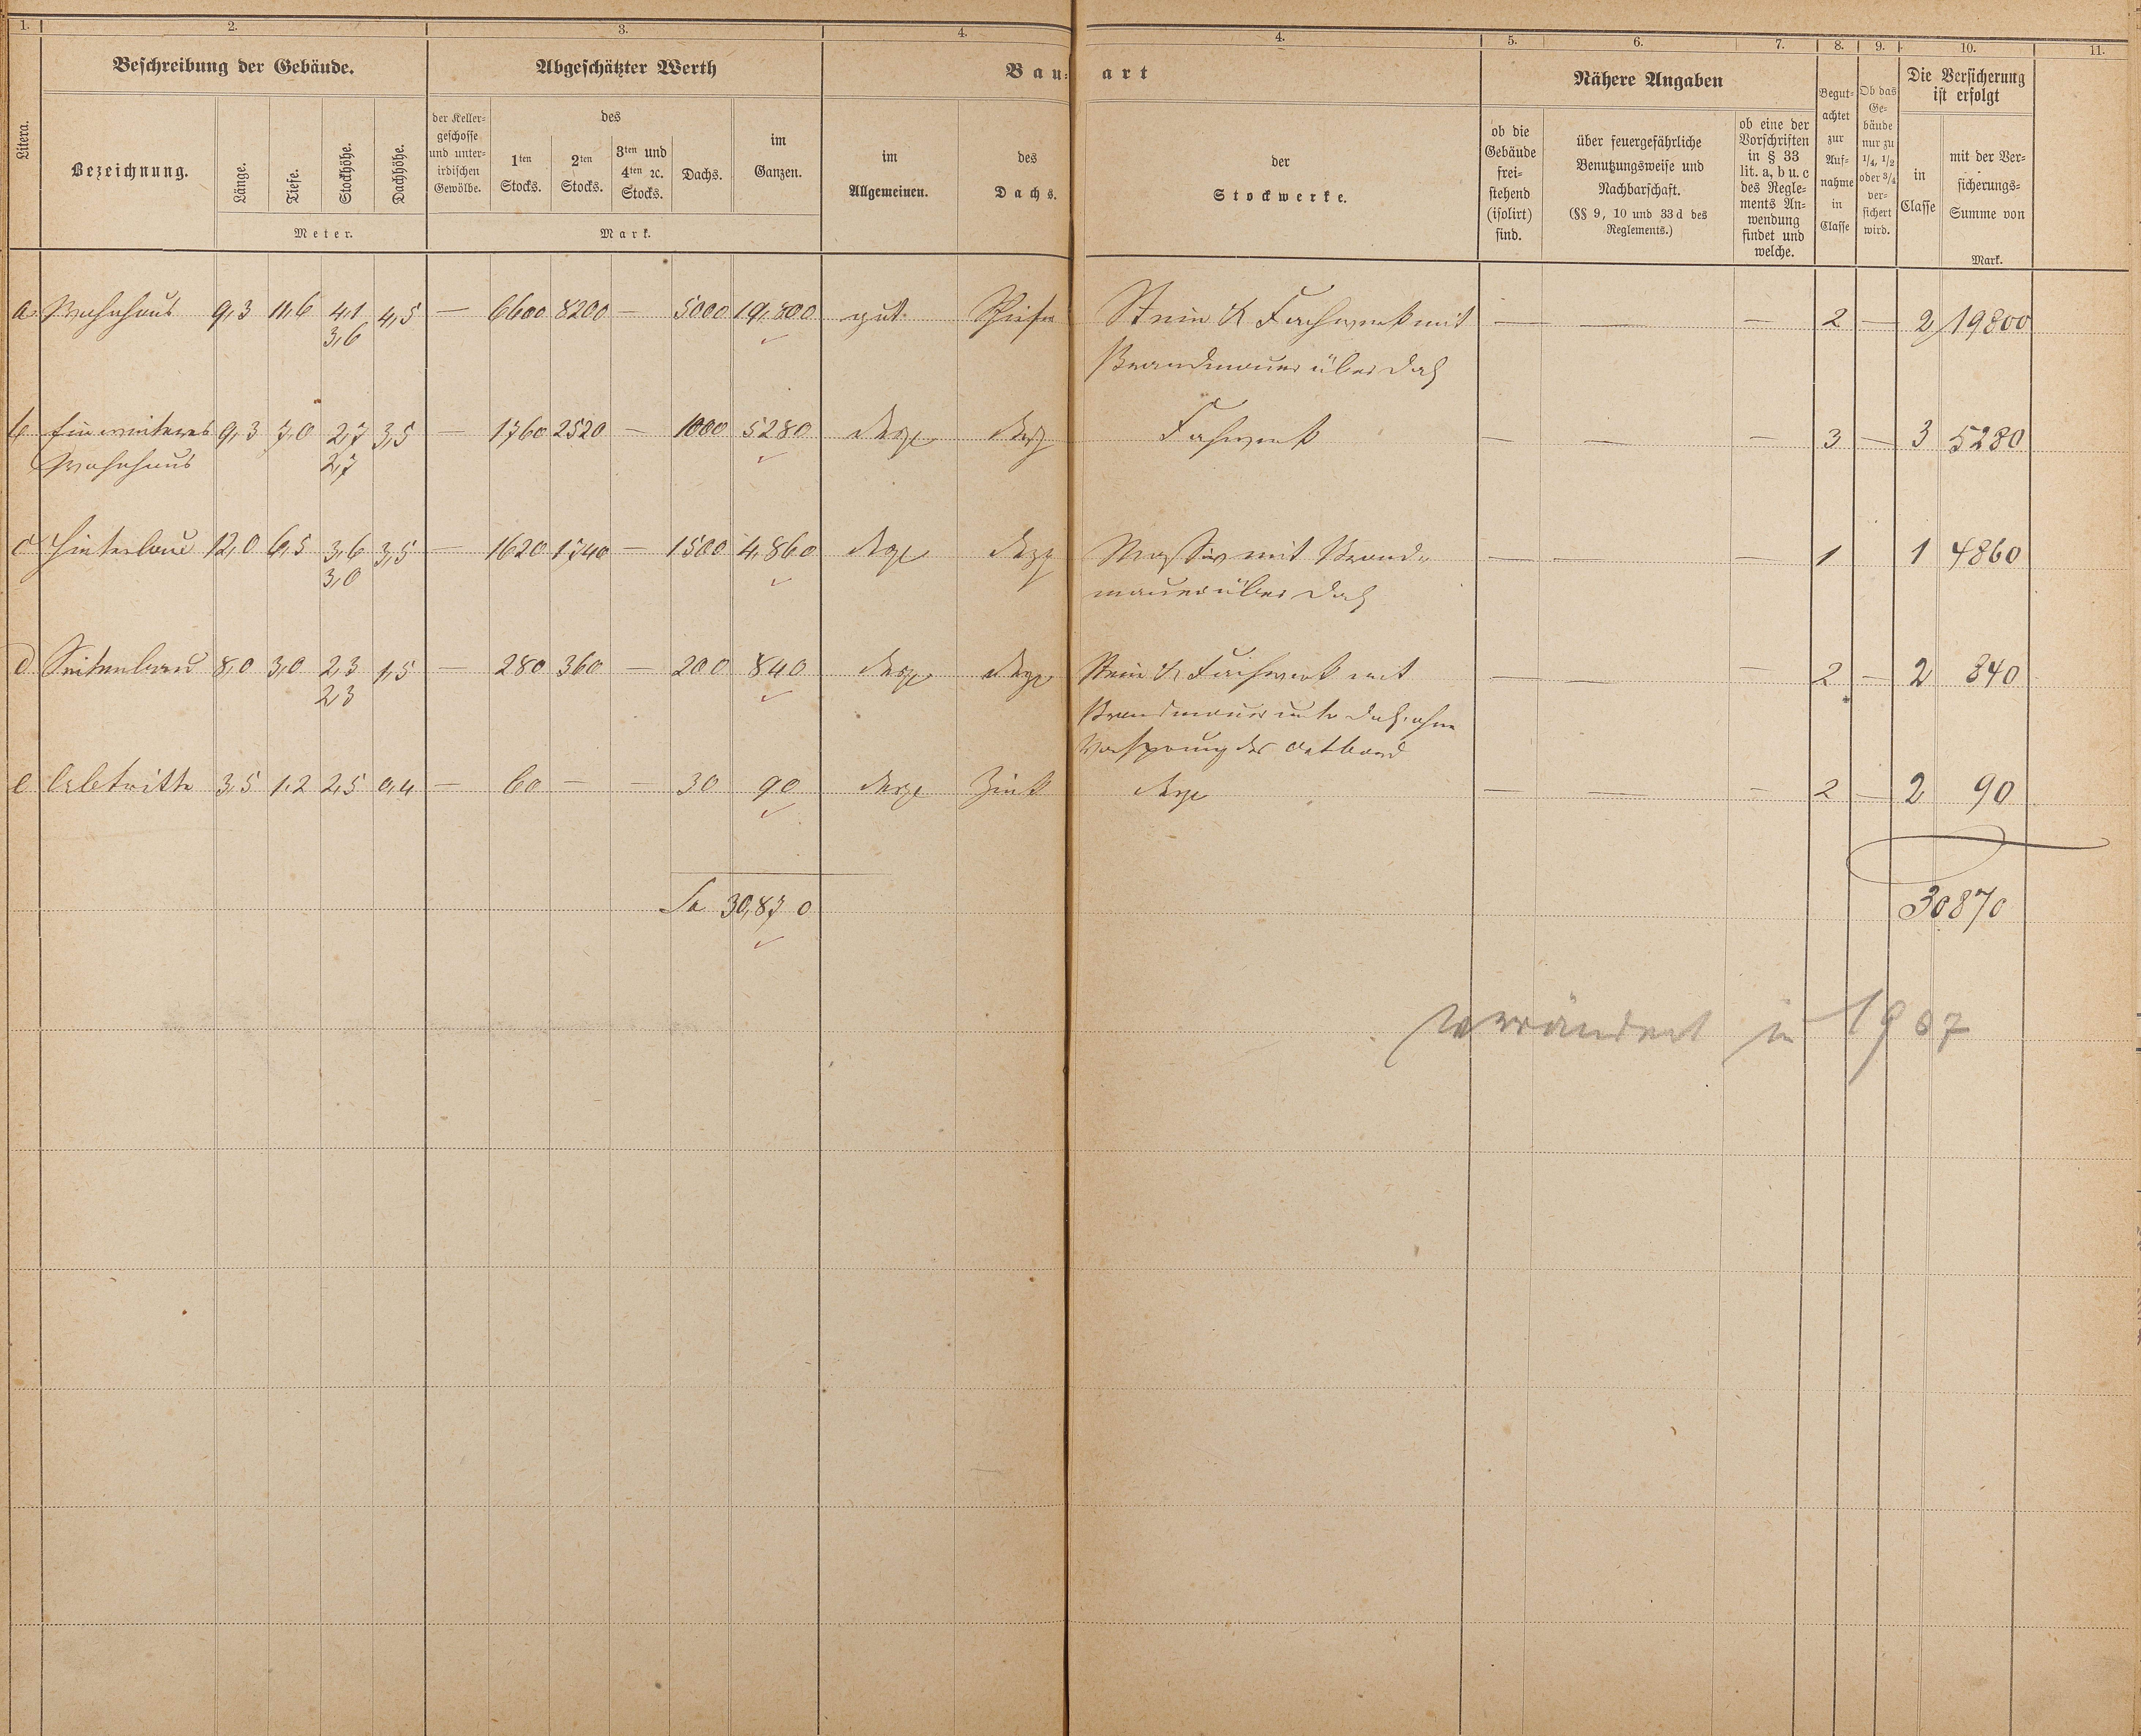 1. 2. 3. 4. 4. 5. 6. 7. 8. 9. 10. 11.
Litera.
Beschreibung der Gebäude.
Bezeichnung.
Länge.
Tiefe.
Stockhöhe.
Dachhöhe.
Meter.
Abgeschätzter Werth
der Keller-
geschosse
und unter-
irdischen
Gewölbe.
des
1ten
Stocks.
2ten
Stocks.
3ten und
4ten ꝛc.
Stocks.
Dachs.
im
Ganzen.
Mark.
Bau-
art
im
Allgemeinen.
des
Dachs.
der
Stockwerke.
Nähere Angaben
ob die
Gebäude
frei-
stehend
(isolirt)
sind.
über feuergefährliche
Benutzungsweise und
Nachbarschaft.
(§§ 9, 10 und 33 d des
Reglements.)
ob eine der
Vorschriften
in § 33
lit. a, b u. c
des Regle-
ments An-
wendung
findet und
welche.
Begut-
achtet
zur
Auf-
nahme
in
Classe
Ob das
Ge-
bäude
nur zu
1/4, 1/2
oder 3/4
ver-
sichert
wird.
Die Versicherung
ist erfolgt
in
Classe
mit der Ver-
sicherungs-
Summe von
Mark.
a Wohnhaus 9,3 11,6 4,1 4,5 — 6600 8200 — 5000 19,800 gut Schiefer Stein & Fachwerk mit — — — 2 — 2 19800
3,6
Brandmauer über Dach
b Ein weiteres 9,3 7,0 2,7 3,5 — 1760 2520 — 1000 5280 desgl desgl Fachwerk — — — 3 — 3 5280
Wohnhaus 2,7
c Hinterbau 12,0 6,5 3,6 3,5 — 1620 1740 — 1500 4,860 desgl desgl Massiv mit Brand- — — — 1 1 4860
3,0
mauer über Dach
d Seitenbau 8,0 3,0 2,3 1,5 — 280 360 — 200 840 desgl desgl Stein & Fachwerk mit — — — 2 — 2 840
2,3
Brandmauer unter Dach, ohne
Vorsprung der
e Abtritte 3,5 1,2 2,5 0,4 — 60 — — 30 90 desgl Zink desgl — — — 2 — 2 90
Sa 30,870
30870
verändert in 1907